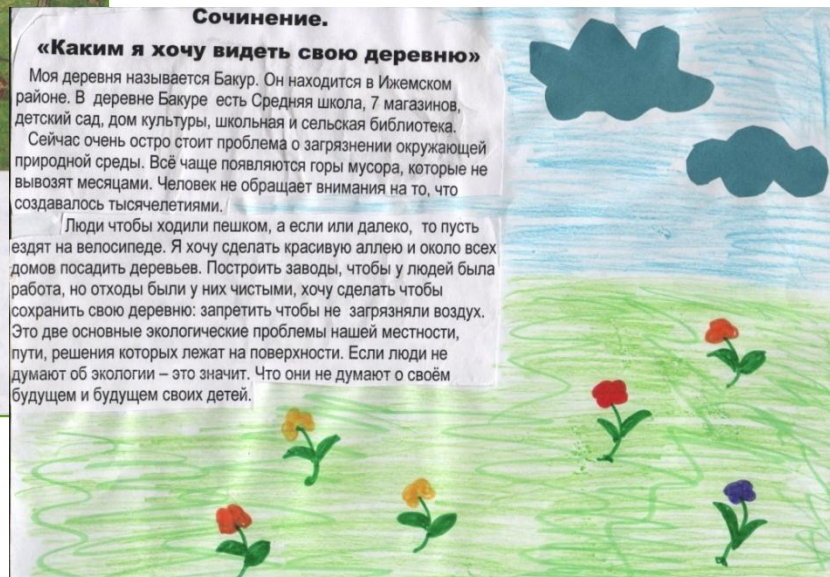 Сочинение.
«Каким я хочу видеть свою деревню»
Моя деревня называется Бакур. Он находится в Ижемском
районе. В деревне Бакуре есть Средняя школа, 7 магазинов,
детский сад, дом культуры, школьная и сельская библиотека.
Сейчас очень остро стоит проблема о загрязнении окружающей
природной среды. Всё чаще появляются горы мусора, которые не
вывозят месяцами. Человек не обращает внимания на то, что
создавалось тысячелетиями.
Люди чтобы ходили пешком, а если или далеко, то пусть
ездят на велосипеде. Я хочу сделать красивую аллею и около всех
домов посадить деревьев. Построить заводы, чтобы у людей была
работа, но отходы были у них чистыми, хочу сделать чтобы
сохранить свою деревню: запретить чтобы не загрязняли воздух.
Это две основные экологические проблемы нашей местности,
пути, решения которых лежат на поверхности. Если люди не
думают об экологии – это значит. Что они не думают о своём
будущем и будущем своих детей.